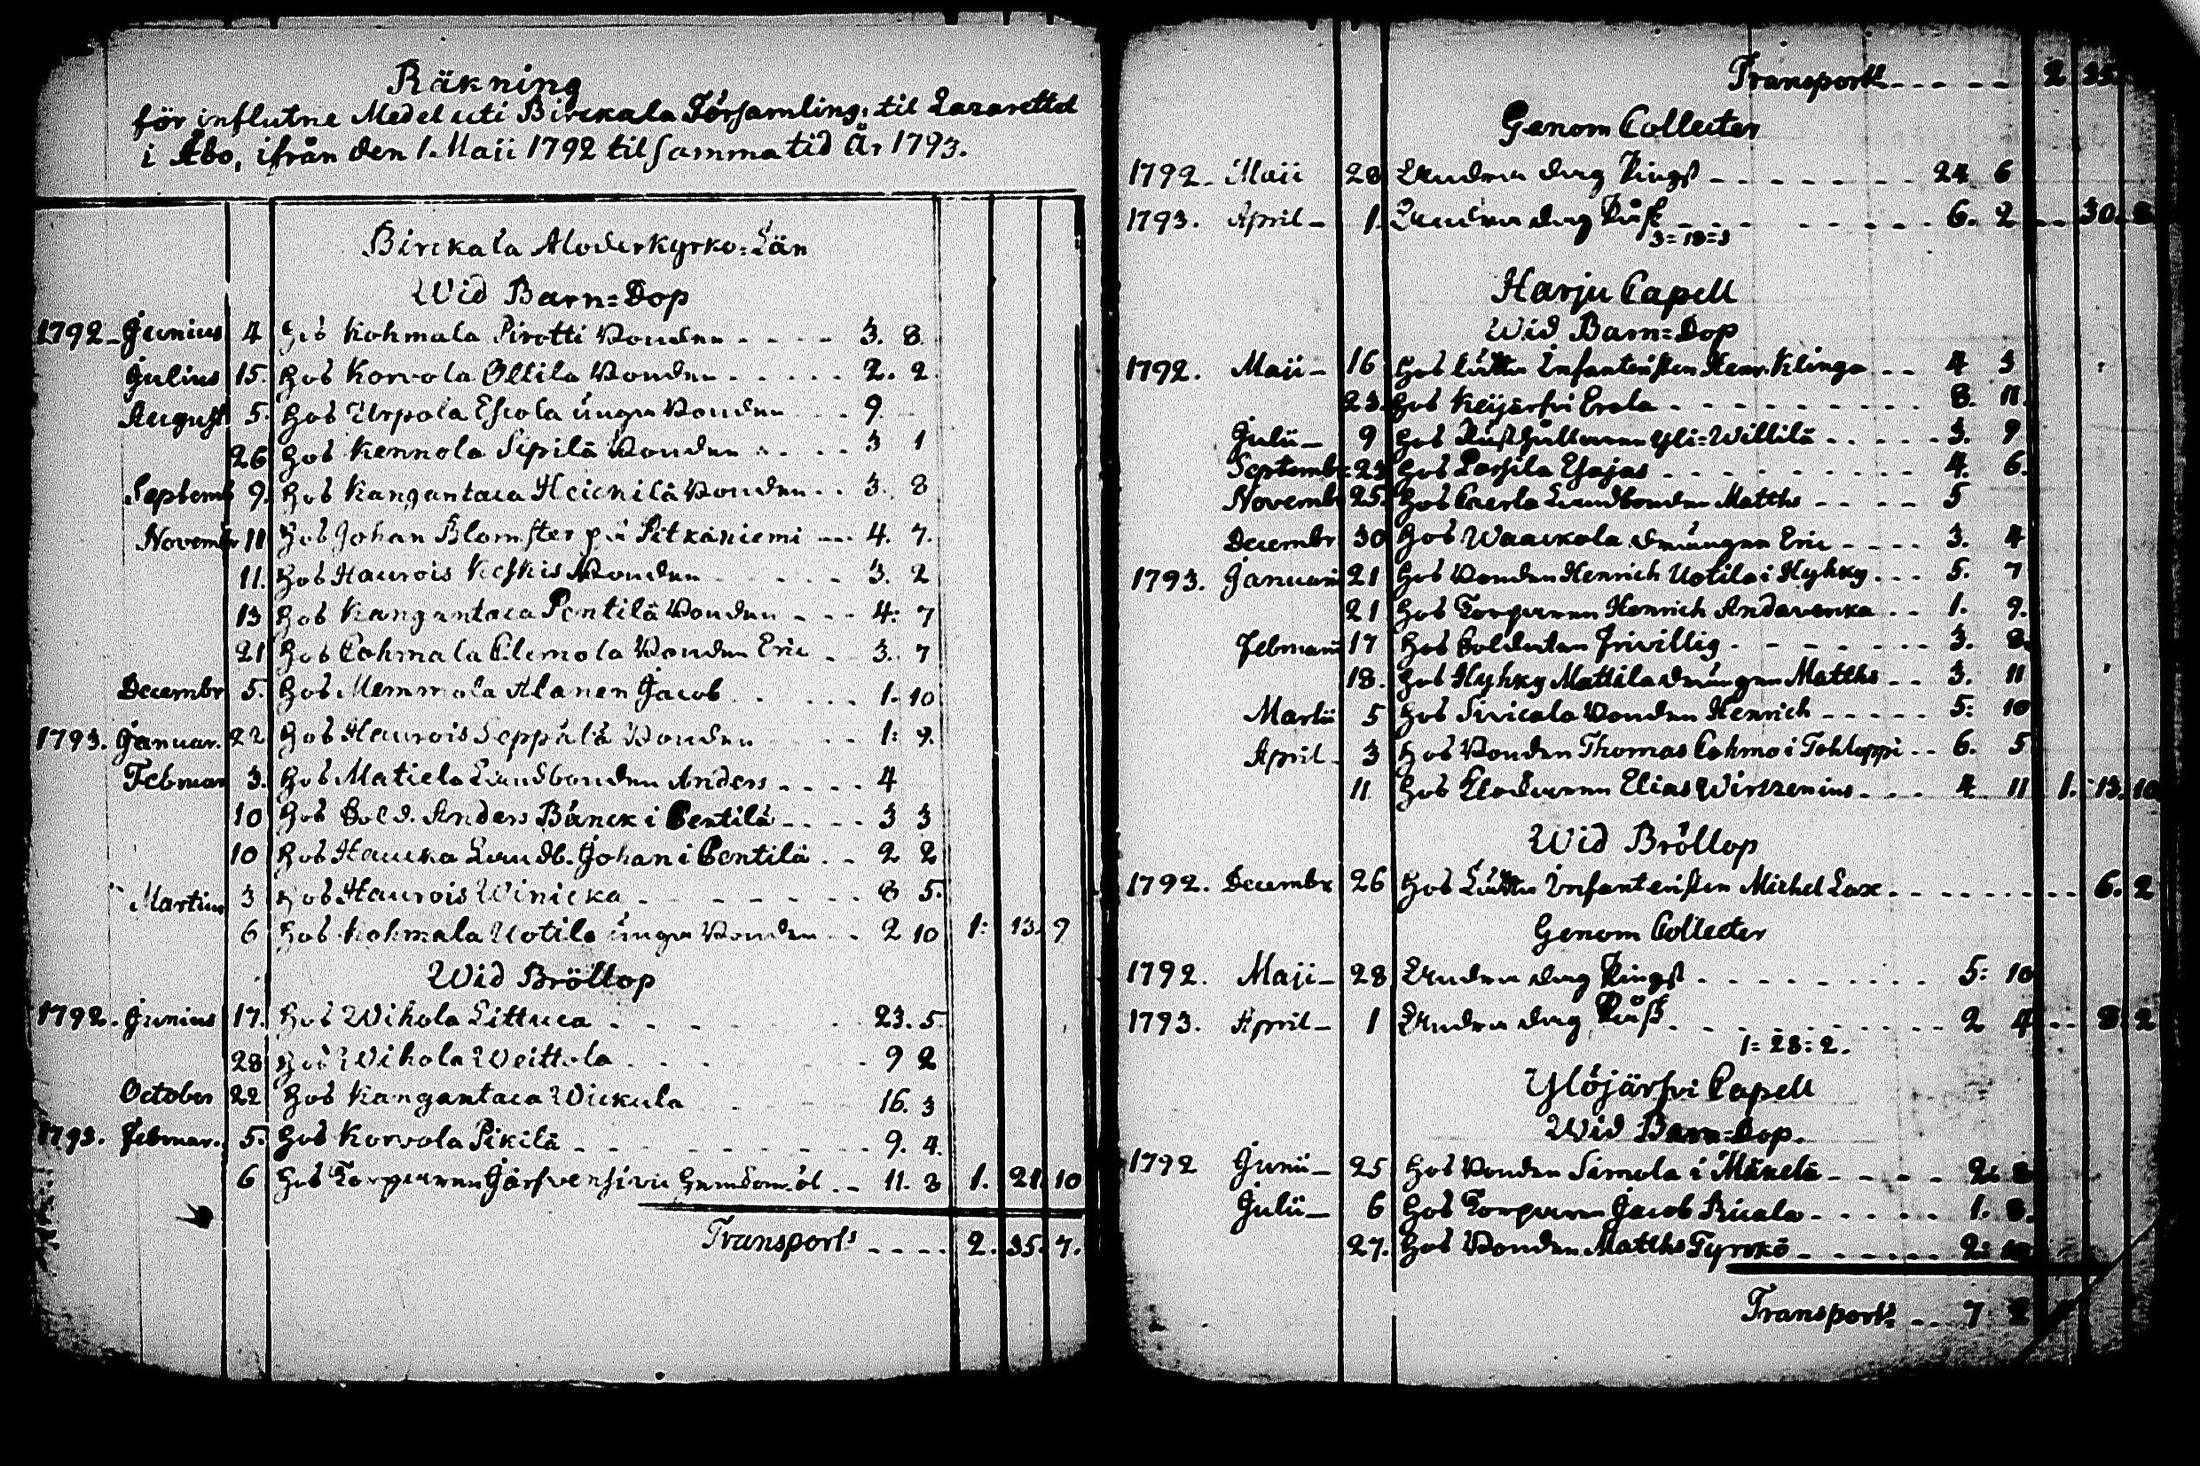 Räkning
för influtne Medel uti Birckala Församling, til Lazarettet
i Åbo, ifrån den 1. Maji 1792 til samma tid År 1793.
Birckala Moderkyrko=Län
Wid Barn=Dop
1792 - Junius 4 Hos Kohmala Pirotti Bonden - - - - 3. 8
Julius 15. Hos Korvola Ollila Bonden - - - - - 2. 2
August 5. Hos Urpola Escola unga Bonden - - - 9. -
26 Hos Kennola Sipilä Bonden - - - - 3 1
Septemb 9. Hos Kangantaca Heickilä Bonden - - 3. 8
Novembr 11 Hos Johan Blomster på Pitkäniemi - - - 4. 7.
11. Hos Haurois Keskis Bonden - - - - - 3. 2
13 Hos Kangantaca Pentilä Bonden - - - 4: 7
21 Hos Cohmala Clemola Bonden Eric - - 3. 7
Decembr 5. Hos Memmola Alanen Jacob - - - - 1. 10
1793. Januar. 22 Hos Haurois Seppälä Bonden - - - 1: 9.
Februar 3. Hos Matiela Landbonden Anders - - - - 4
10 Hos Sold. Anders Bänck i Pentilä - - - - 3 3
10 Hos Haucka Landb. Johan i Pentilä - - 2 2
Martius 3 Hos Haurois Winicka - - - - - - - 8 5.
6 Hos Kohmala Uotila unga Bonden - - 2 10 1: 13. 9
Wid Bröllop
1792. Junius 17. Hos Wihola Littuca - - - - - - 23. 5
28 Hos Wihola Weittola - - - - - 9 2
October 22 Hos Kangantaca Wickula - - - - 16. 3
1793. Februar. 5. Hos Korvola Pikilä - - - - - - - - 9. 4.
6 Hos Torparen Järfvensivu - - 11. 3 1. 21. 10
Transport - - - - 2. 35. 7.
Transport - - - - - 2 35
Genom Collecter
1792 - Maii 28 Andra dag Pingst - - - - - - - - 24 6
1793. April - 1. Andra dag Påsk - - - - - - - - 6. 2 - - 30. 8
3=19=3
Harju Capell
Wid Barn=Dop
1792. Maji - 16 Hos Lätta Infanteristen Henr. Klinga - - 4 3
23. Hos Keijärfvi Erola - - - - - - - - - 8. 11.
Julii - 9 Hos Rusthållaren Yli=Willilä - - - - - 3. 9
Septembr 23 Hos Passila Esajas - - - - - - - - - 4. 6.
Novembr 25. Hos Caerla Landbonden Matths - - - - 5
Decembr 30 Hos Waackola drängen Eric - - - - 3. 4
1793. Januarii 21 Hos Bonden Henrich Uotila i Hyhky - - - 5. 7
21 Hos Torparen Henrich Andaverka - - 1. 9.
Februarii 17 Hos Soldaten Frivillig - - - - - - - 3. 8.
18. Hos Hyhky Mattila drängen Matths - - 3. 11
Martii 5 Hos Sivicala Bonden Henrich - - - - - 5: 10
April - 3 Hos Bonden Thomas Cohmo i Tohloppi - - 6. 5
11 Hos Klockaren Elias Wirtzenius - - - 4. 11 1. 13. 10
Wid Bröllop
1792. Decembr 26 Hos Lätta Infanteristen Michel Lax - - - - - - - - 6. 2
Genom Collecter
1792. Maji - 28 Andra dag Pingst - - - - - - - - - 5: 10
1793. April - 1 Andra dag Påsk - - - - - - - - - 2 4 - - 8 2
1=28=2.
Ylöjärfvi Capell
Wid Barn=Dop.
1792 Junii - 25 Hos Bonden Simola i Mäkelä - - - - 2.
Julii - 6 Hos Torparen Jacob Ricala - - - - - 1. 8.
27. Hos Bonden Matths Tyrckö - - - - - - 2:
Transport - - 7